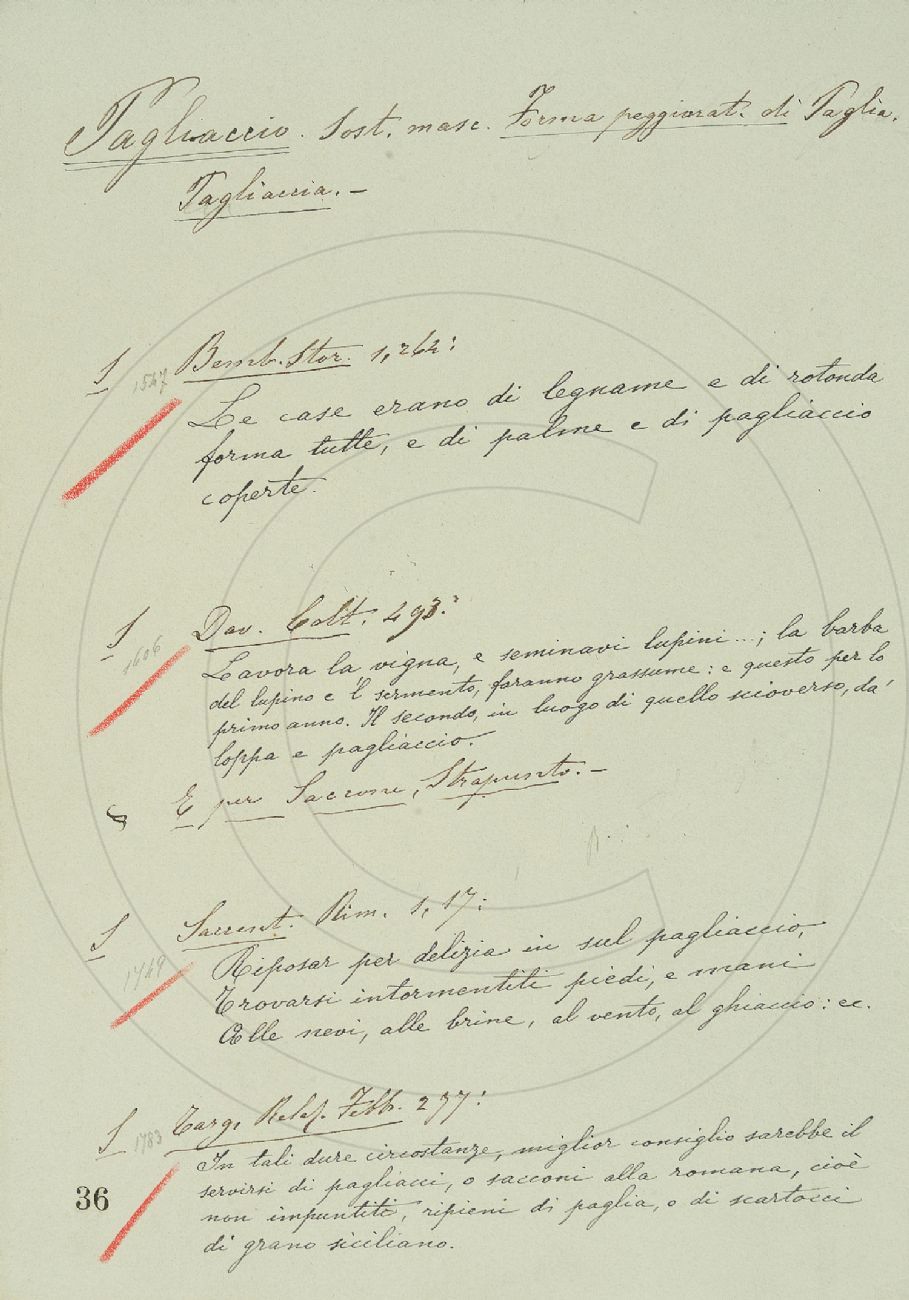 Pagliaccio. Sost. masc. Forma peggiorat. di Paglia.
Pagliaccia. –
S 1547 Bemb. Stor. 1, 262:
Le case erano di legname e di rotonda
forma tutte, e di palme e di pagliaccio
coperte.
S 1606 Dav. Colt. 493:
Lavora la vigna, e seminavi lupini ...; la barba
del lupino e 'l sermento, faranno grassume: e questo per lo
primo anno. Il secondo, in luogo di quello scioverso, da'
loppa e pagliaccio.
§ E per Saccone, Strapunto. –
S 1749 Saccent. Rim. 1, 17:
Riposar per delizia in sul pagliaccio,
Trovarsi intormentiti piedi, e mani
Alle nevi, alle brine, al vento, al ghiaccio: ec.
S 1783 Targ. Relaz. Febb. 277:
In tali dure circostanze, miglior consiglio sarebbe il
servirsi di pagliacci, o sacconi alla romana, cioè
non impuntiti, ripieni di paglia, o di scartocci
di grano siciliano.
36